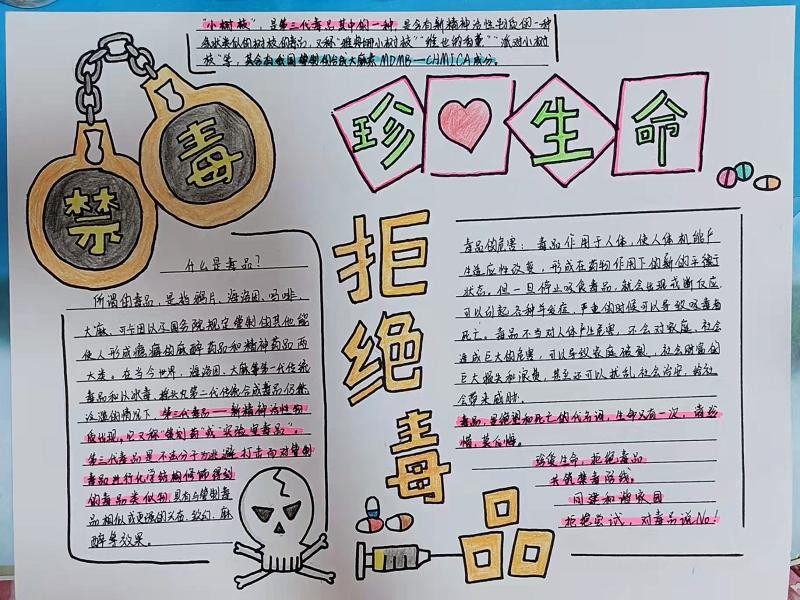 "小树枝",是第三代毒品其中的一种,是含有新精神活性物质的一种
枝"等,其含有我国管制的合成大麻素MDMB—CHMICA成分。
禁毒
珍生命
拒绝毒
什么是毒品?
所谓的毒品,是指鸦片、海洛因、吗啡、
大麻、可卡因以及国务院规定管制的其他能
使人形成瘾癖的麻醉药品和精神药品两
大类。在当今世界,海洛因、大麻等第一代传统
毒品和以冰毒、摇头丸第二代传统合成毒品仍然
泛滥的情况下,第三代毒品——新精神活性物
质出现,它又称"策划药"或"实验室毒品"。
第三代毒品是不法分子为逃避打击而对管制
毒品进行化学结构修饰得到
的毒品类似物,具有与管制毒
品相似或更强的兴奋、致幻、麻
醉等效果。
毒品的危害:毒品作用于人体,使人体机能产
生适应性改变,形成在药物作用下的新的平衡
状态。但一旦停止吸食毒品,就会出现戒断反应,
可以引起各种并发症,严重的时候可以导致吸毒者
死亡。毒品不当对人体产生危害,还会对家庭、社会
造成巨大的危害,可以导致家庭破裂,社会财富的
巨大损失和浪费,甚至还可以扰乱社会治安,给社
会带来威胁。
毒品,是绝望和死亡的代名词,生命只有一次,请珍
惜,莫后悔。
珍爱生命,拒绝毒品
共筑禁毒防线。
同建和谐家园
拒绝尝试,对毒品说No!